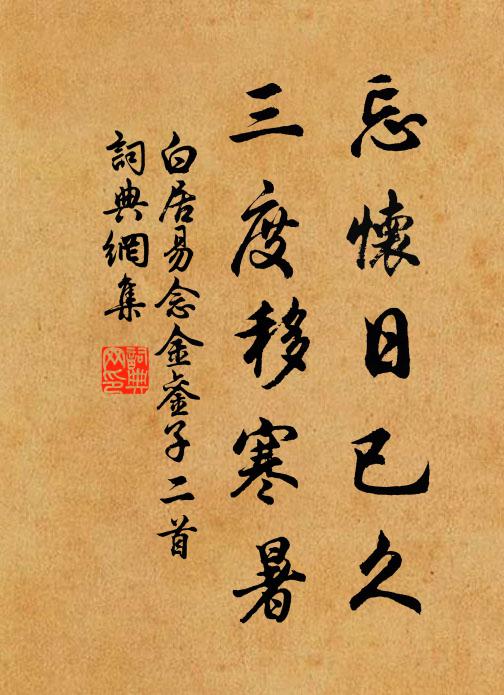 忘懷日已久
三度移寒暑
白居易念金鑾子二首
詞典網集
詞典
网印